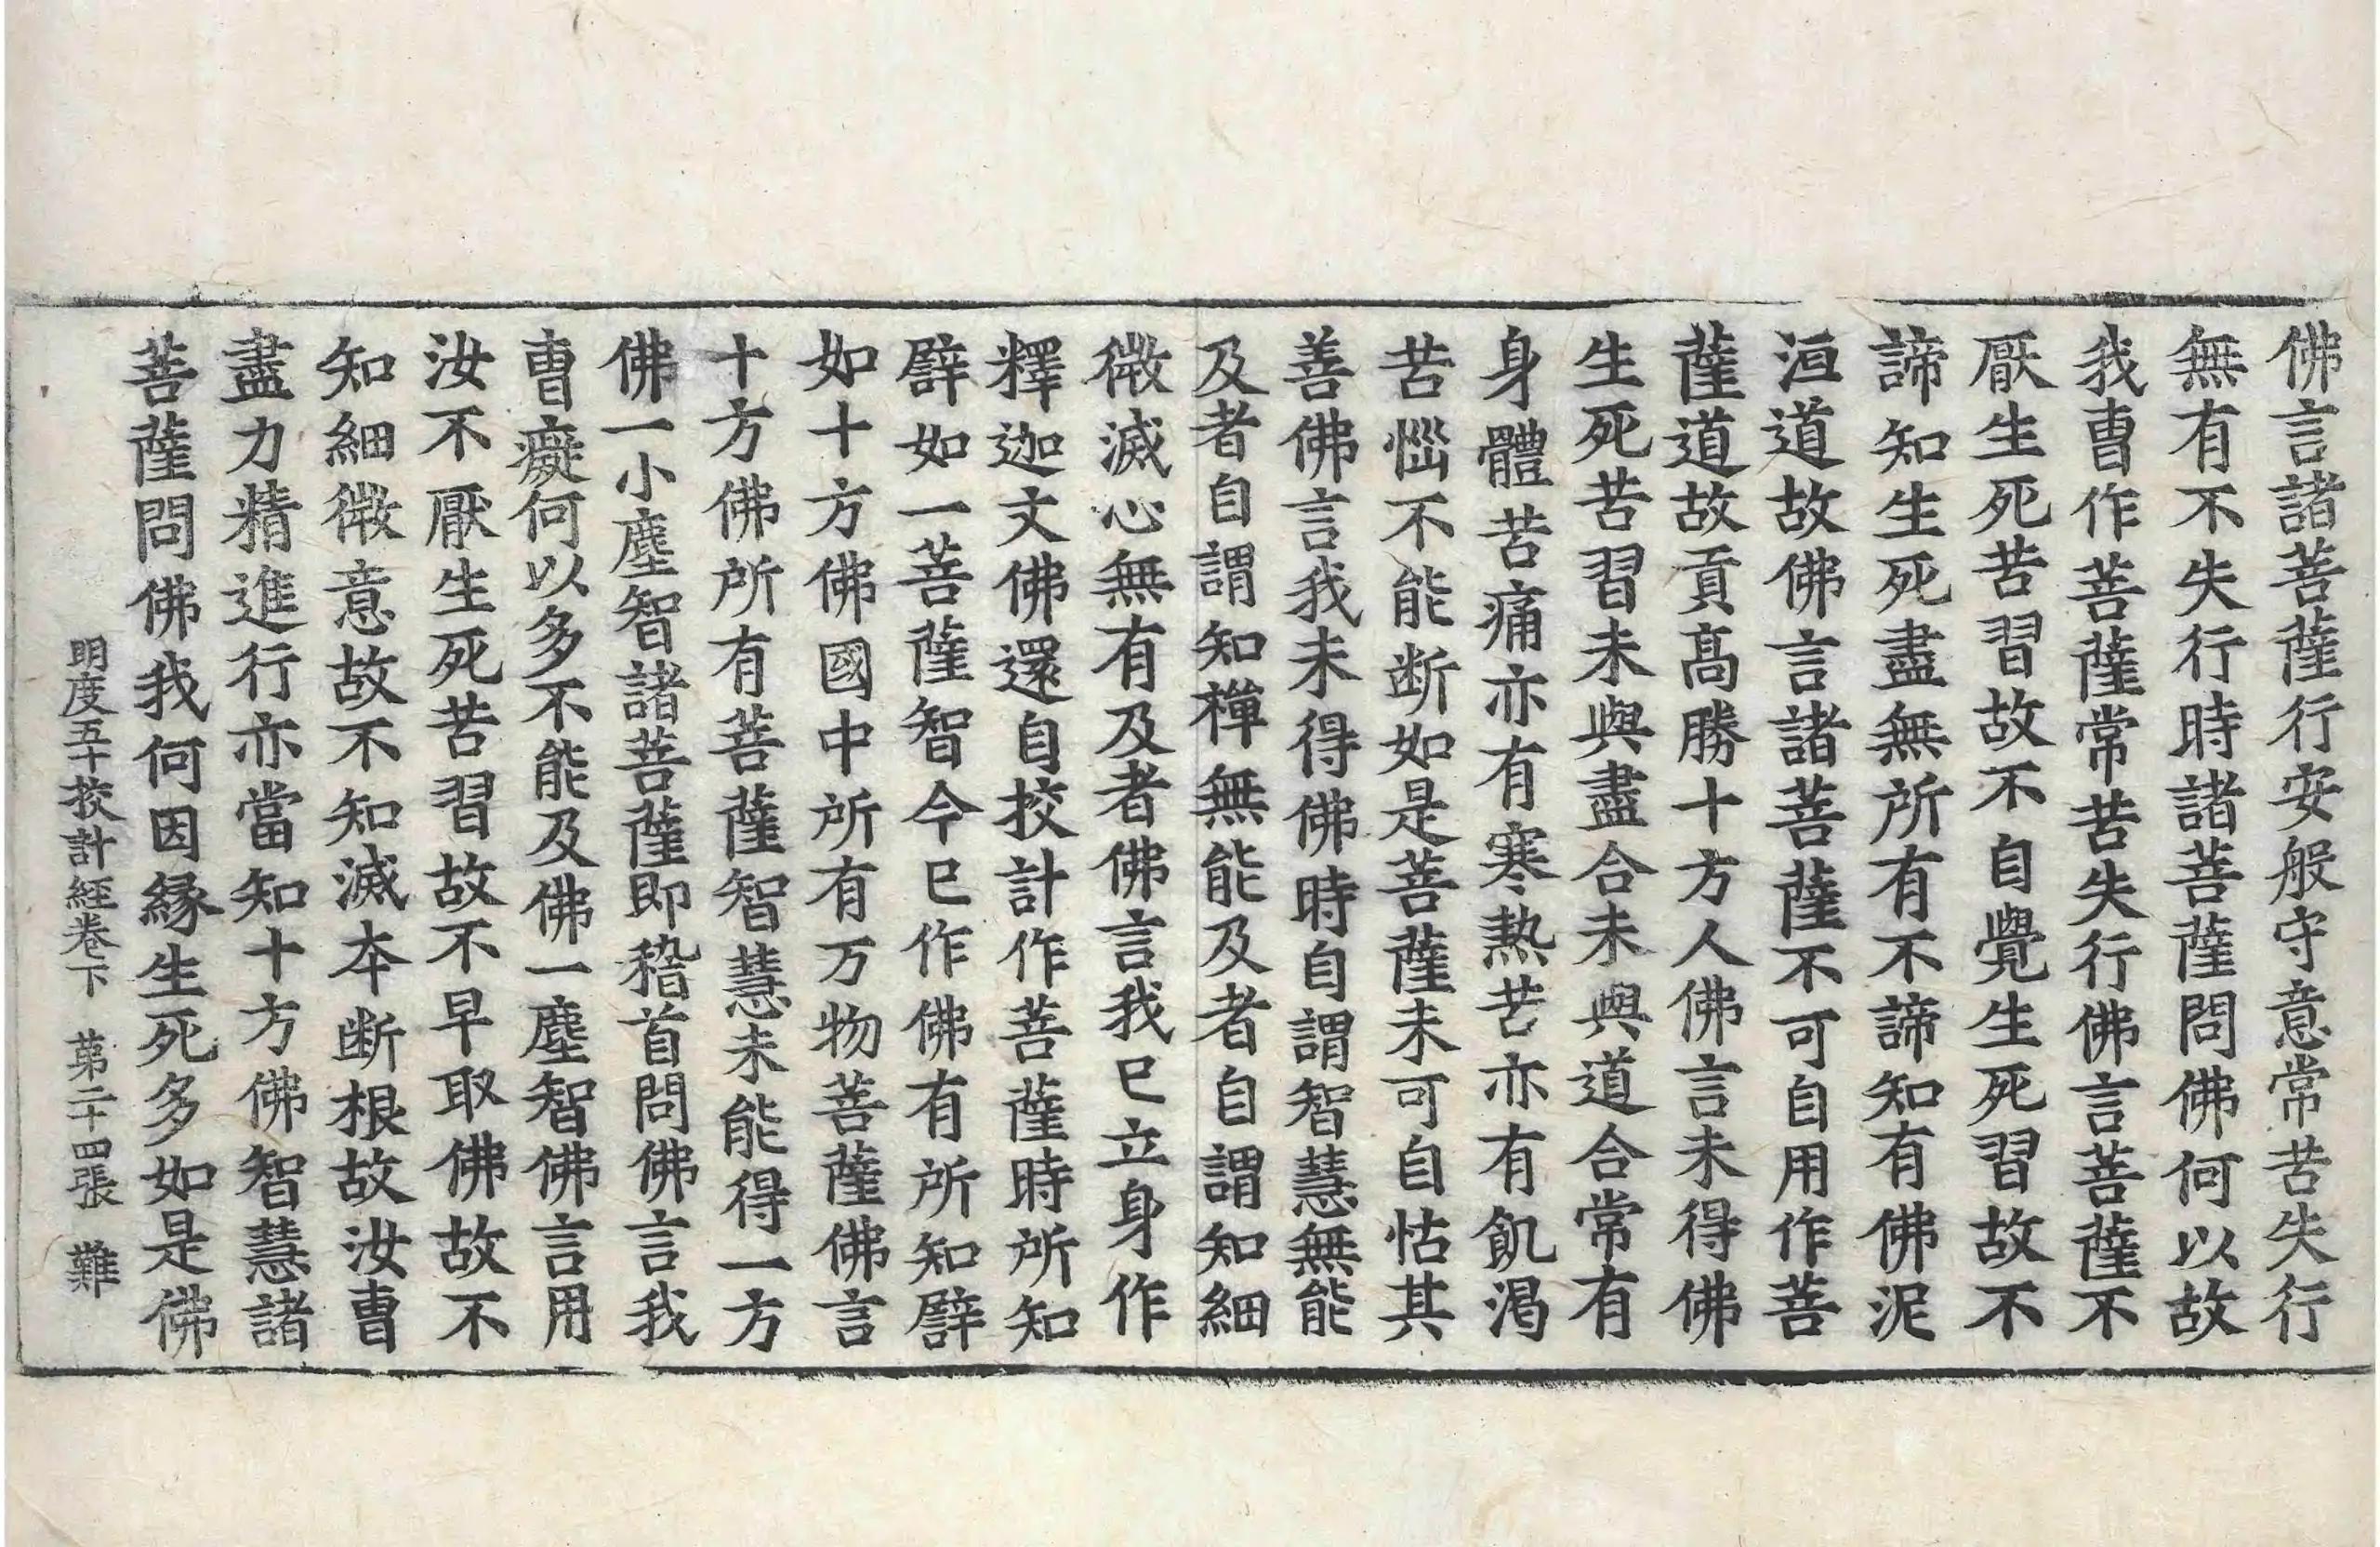 佛言諸菩薩行安般守意常苦失行
無有不失行時諸菩薩問佛何以故
我曺作菩薩常苦失行佛言菩薩不
厭生死苦習故不自覺生死習故不
諦知生死盡無所有不諦知有佛泥
洹道故佛言諸菩薩不可自用作菩
薩道故貢髙勝十方人佛言未得佛
生死苦習未與盡合未與道合常有
身體苦痛亦有寒熱苦亦有飢渴
苦惱不能断如是菩薩未可自怙其
善佛言我未得佛時自謂智慧無能
及者自謂知禪無能及者自謂知細
微滅心無有及者佛言我巳立身作
釋迦文佛還自挍計作菩薩時所知
譬如一菩薩智今巳作佛有所知譬
如十方佛國中所有万物菩薩佛言
十方佛所有菩薩智慧未能得一方
佛一小塵智諸菩薩即稽首問佛言我
曺癡何以多不能及佛一塵智佛言用
汝不厭生死苦習故不早取佛故不
知細微意故不知滅夲断根故汝曺
盡力精進行亦當知十方佛智慧諸
菩薩問佛我何因縁生死多如是佛
明度五十挍計經卷下 第二十四張 難